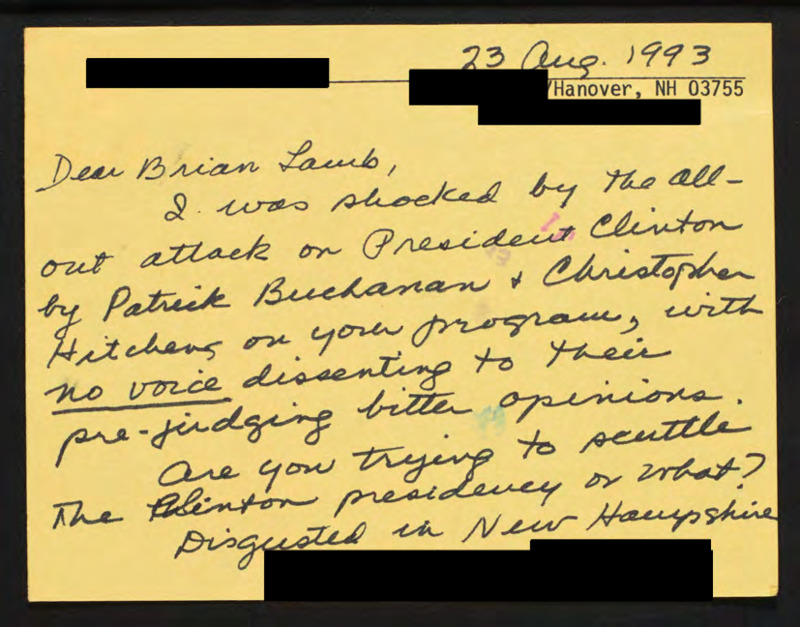 23 Aug. 1993
/Hanover, NH 03755
Dear Brian Lamb,
I was shocked by the all-
out attack on President Clinton
by Patrick Buchanan & Christopher
Hitchens on your program, with
no voice dissenting to their
pre-judging bitter opinions.
Are you trying to scuttle
The Clinton presidency or what?
Disgusted in New Hampshire